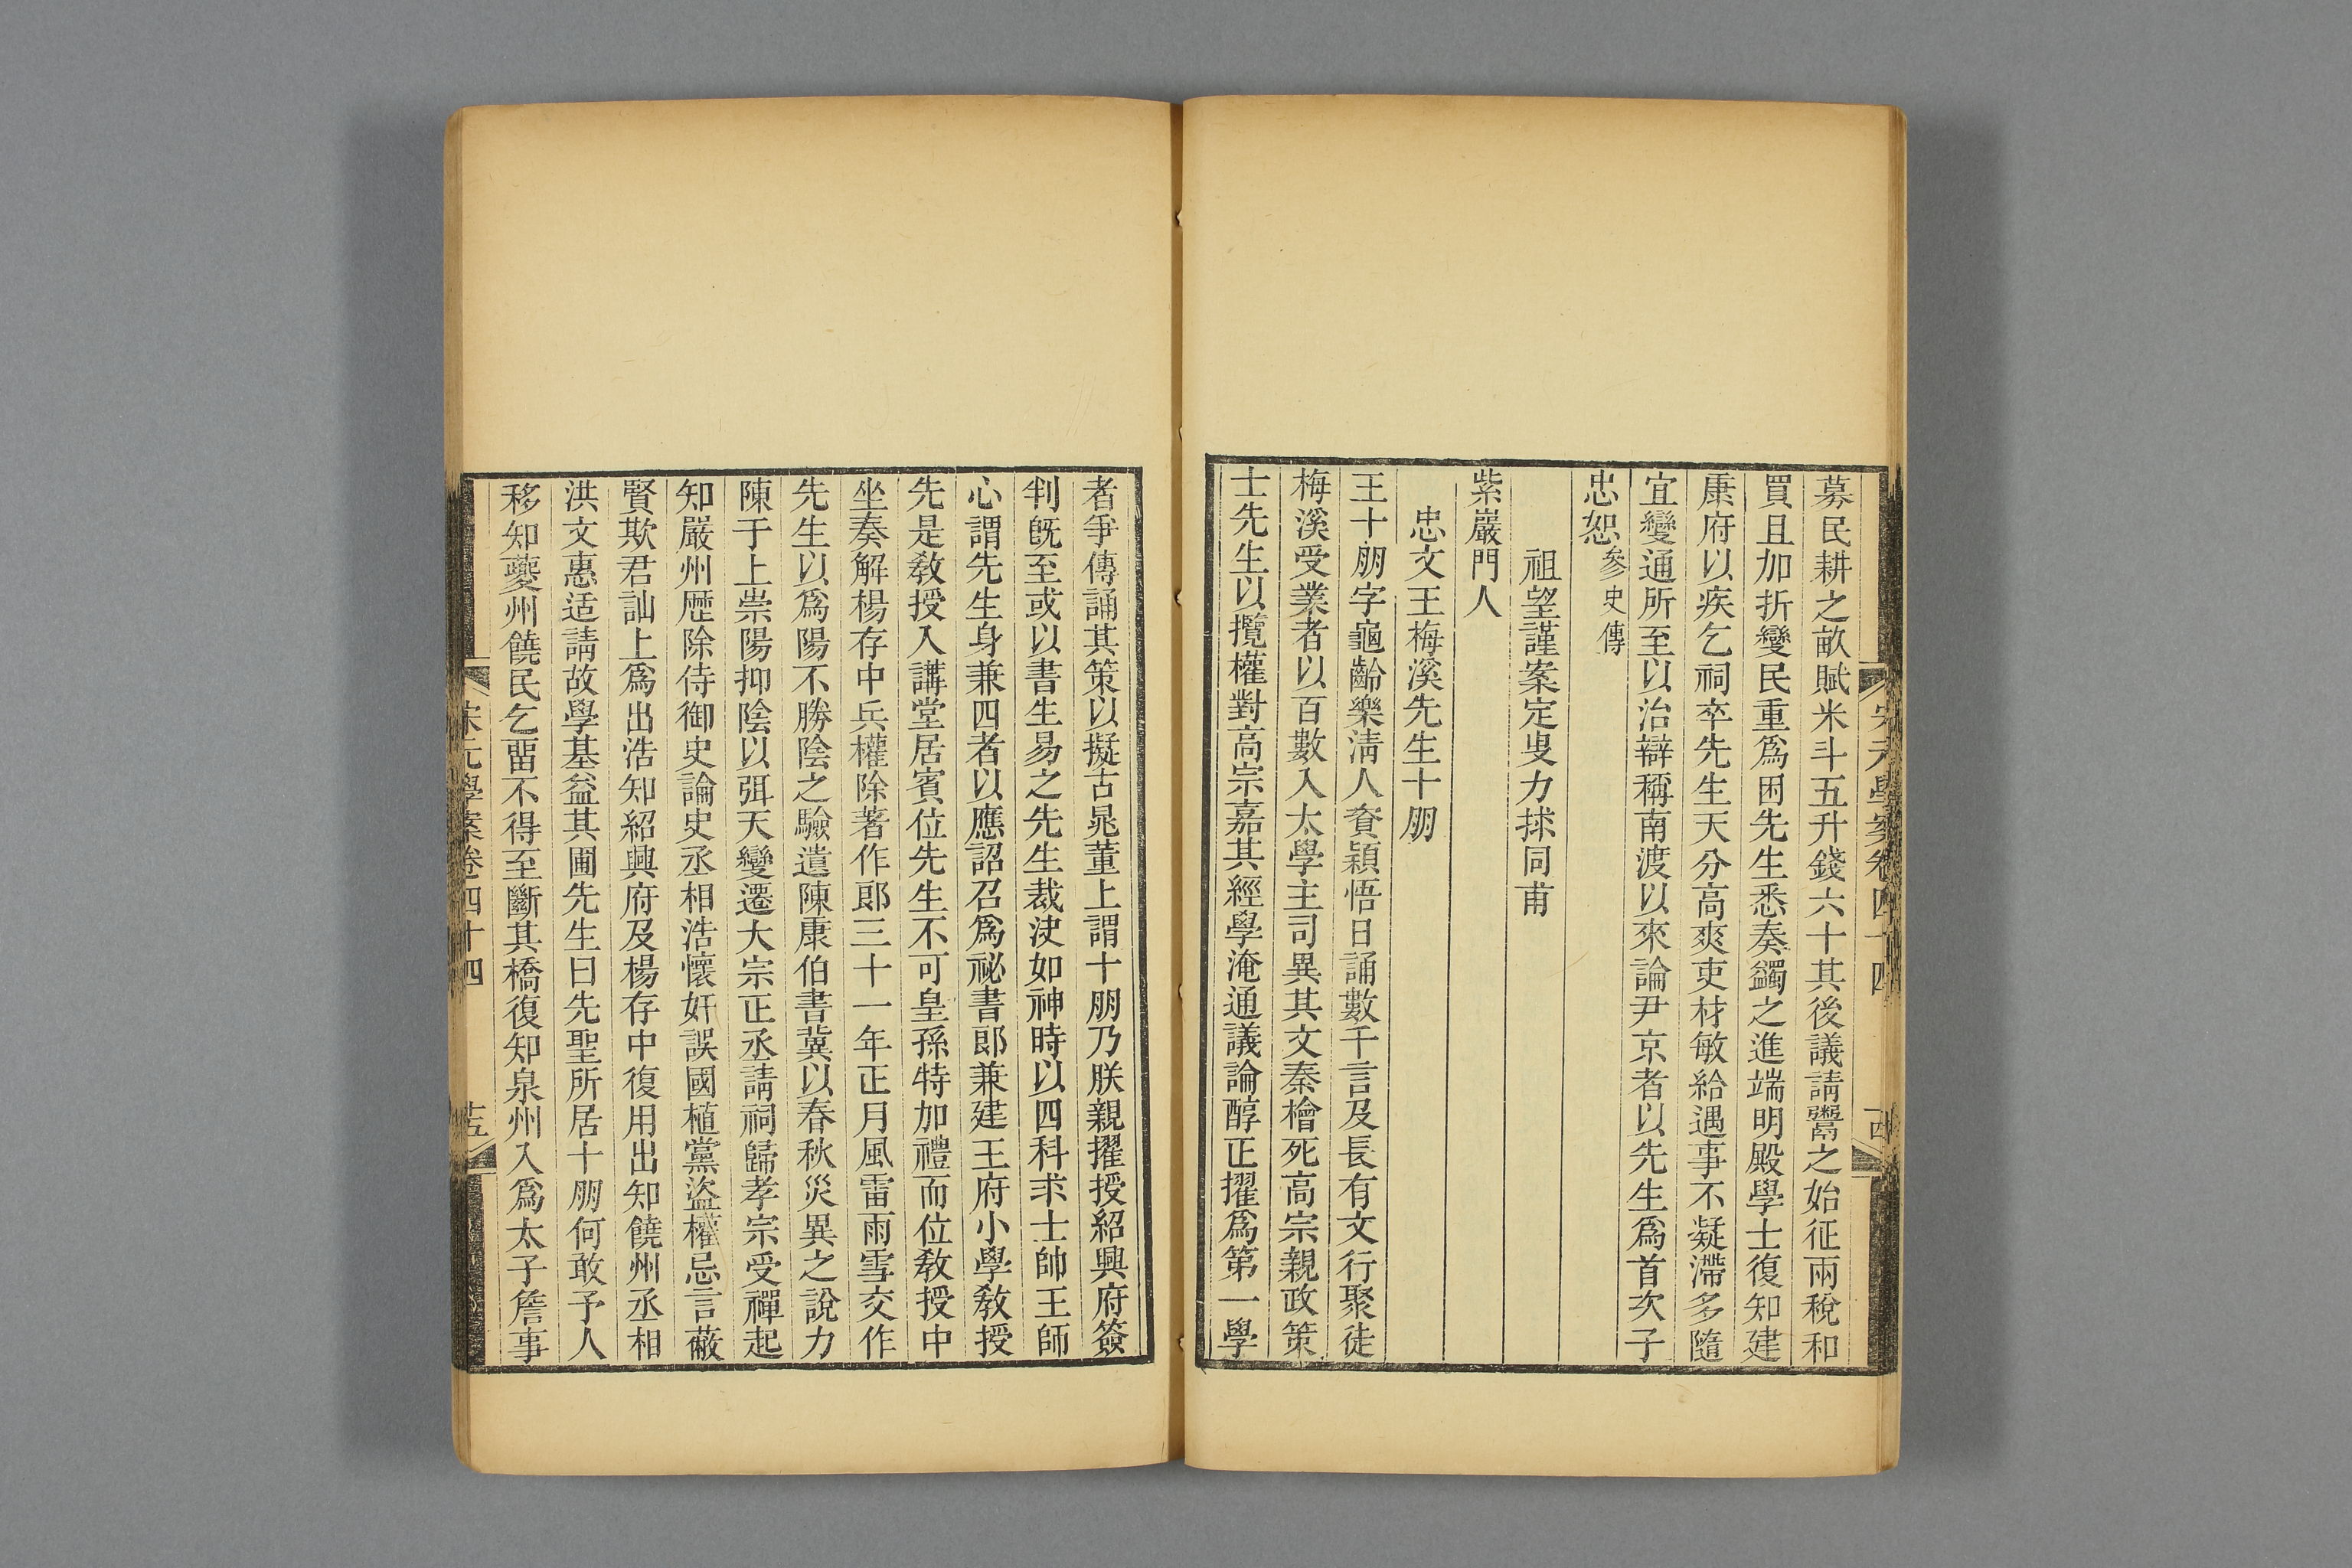 募民耕之畝賦米斗五升錢六十其後議請鬻之始征兩稅和
買且加折變民重爲困先生悉奏蠲之進端明殿學士復知建
康府以疾乞祠卒先生天分高爽吏材敏給遇事不凝滯多隨
宜變通所至以治辯稱南渡以來論尹京者以先生爲首次子
忠恕參史傳
祖望謹案定叟力捄同甫
紫巖門人
忠文王梅溪先生十朋
王十朋字龜齡樂淸人資穎悟日誦數千言及長有文行聚徒
梅溪受業者以百數入太學主司異其文秦檜死高宗親政策
士先生以攬權對高宗嘉其經學淹通議論醇正擢爲第一學
者爭傳誦其策以擬古晁董上謂十朋乃朕親擢授紹興府簽
判旣至或以書生易之先生裁決如神時以四科求士帥王師
心謂先生身兼四者以應詔召爲祕書郎兼建王府小學敎授
先是敎授入講堂居賓位先生不可皇孫特加禮而位敎授中
坐奏解楊存中兵權除著作郎三十一年正月風雷雨雪交作
先生以爲陽不勝陰之驗遣陳康伯書冀以春秋災異之說力
陳于上崇陽抑陰以弭天變遷大宗正丞請祠歸孝宗受禪起
知嚴州歷除侍御史論史丞相浩懷奸誤國植黨盜權忌言蔽
賢欺君訕上爲出浩知紹興府及楊存中復用出知饒州丞相
洪文惠适請故學基益其圃先生曰先聖所居十朋何敢予人
移知夔州饒民乞畱不得至斷其橋復知泉州入爲太子詹事
宋元學案卷四十四
十五